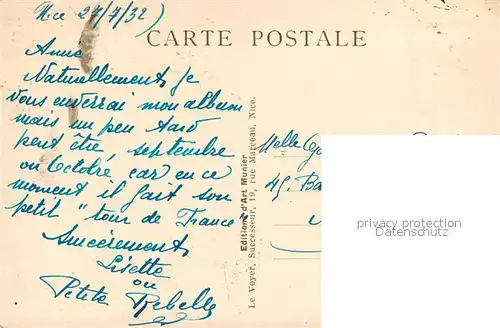 Nice 27/7/32)
CARTE POSTALE
Anne
Naturellement, je
vous enverrai mon album
mais un peu tard
peut être, septembre
ou Octobre, car en ce
moment il fait son
petit "tour de France"
Sincèrement,
Lisette
ou
Petite Rebelle
Editions d'Art Munier
Le Voyer, Successeur, 19, rue Marceau, Nice.
Melle
45, Ba
privacy protection
Datenschutz